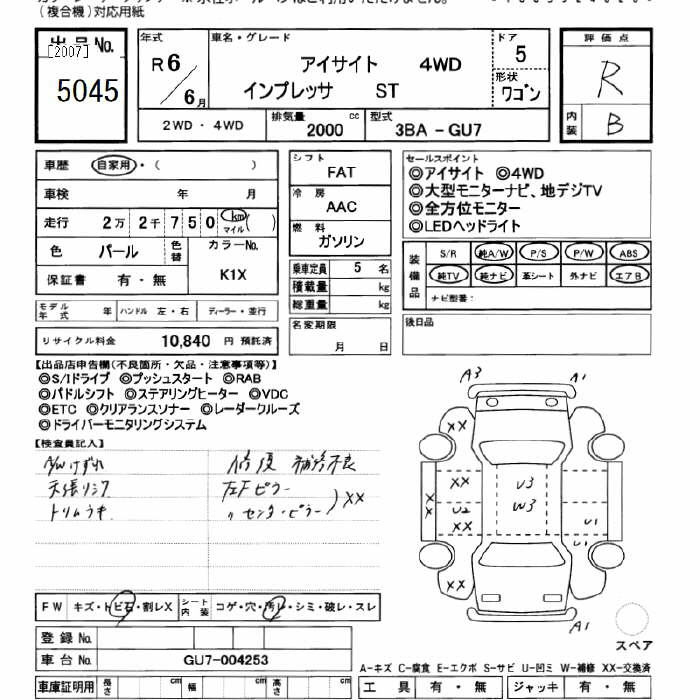 (複合機)対応用紙
出品No.
[2007]
5045
年式
R6/6月
車名・グレード
アイサイト 4WD
インプレッサ ST
ドア
5
形状
ワゴン
評価点
R
内装
B
2WD・4WD
排気量
2000 cc
型式
3BA-GU7
車歴 自家用・( )
車検 年 月
走行 2万2千750 km マイル ( )
色 パール 色替
カラーNo.
K1X
保証書 有・無
モデル年式 年 ハンドル 左・右 ディーラー・並行
リサイクル料金 10,840 円 預託済
シフト
FAT
冷房
AAC
燃料
ガソリン
乗車定員 5 名
積載量 kg
総重量 kg
名変期限
月 日
セールスポイント
◎アイサイト ◎4WD
◎大型モニターナビ、地デジTV
◎全方位モニター
◎LEDヘッドライト
装備品
S/R 純A/W P/S P/W ABS
純TV 純ナビ 革シート 外ナビ エアB
ナビ型番:
後日品
【出品店申告欄(不良箇所・欠品・注意事項等)】
◎S/Iドライブ ◎プッシュスタート ◎RAB
◎パドルシフト ◎ステアリングヒーター ◎VDC
◎ETC ◎クリアランスソナー ◎レーダークルーズ
◎ドライバーモニタリングシステム
【検査員記入】
天張りシワ
トリムウキ
修復 補修不良
左Fピラー
〃センターピラー
XX
A3
A1
XX
XX
U3
W3
U2
XX
XX
U1
U1
XX
A1
スペア
FW キズ・トビ石・割レX シート内装 コゲ・穴・汚レ・シミ・破レ・スレ
登録No.
車台No. GU7-004253
車庫証明用 長さ cm 幅 cm 高さ cm
A-キズ C-腐食 E-エクボ S-サビ U-凹ミ W-補修 XX-交換済
工具 有・無 ジャッキ 有・無